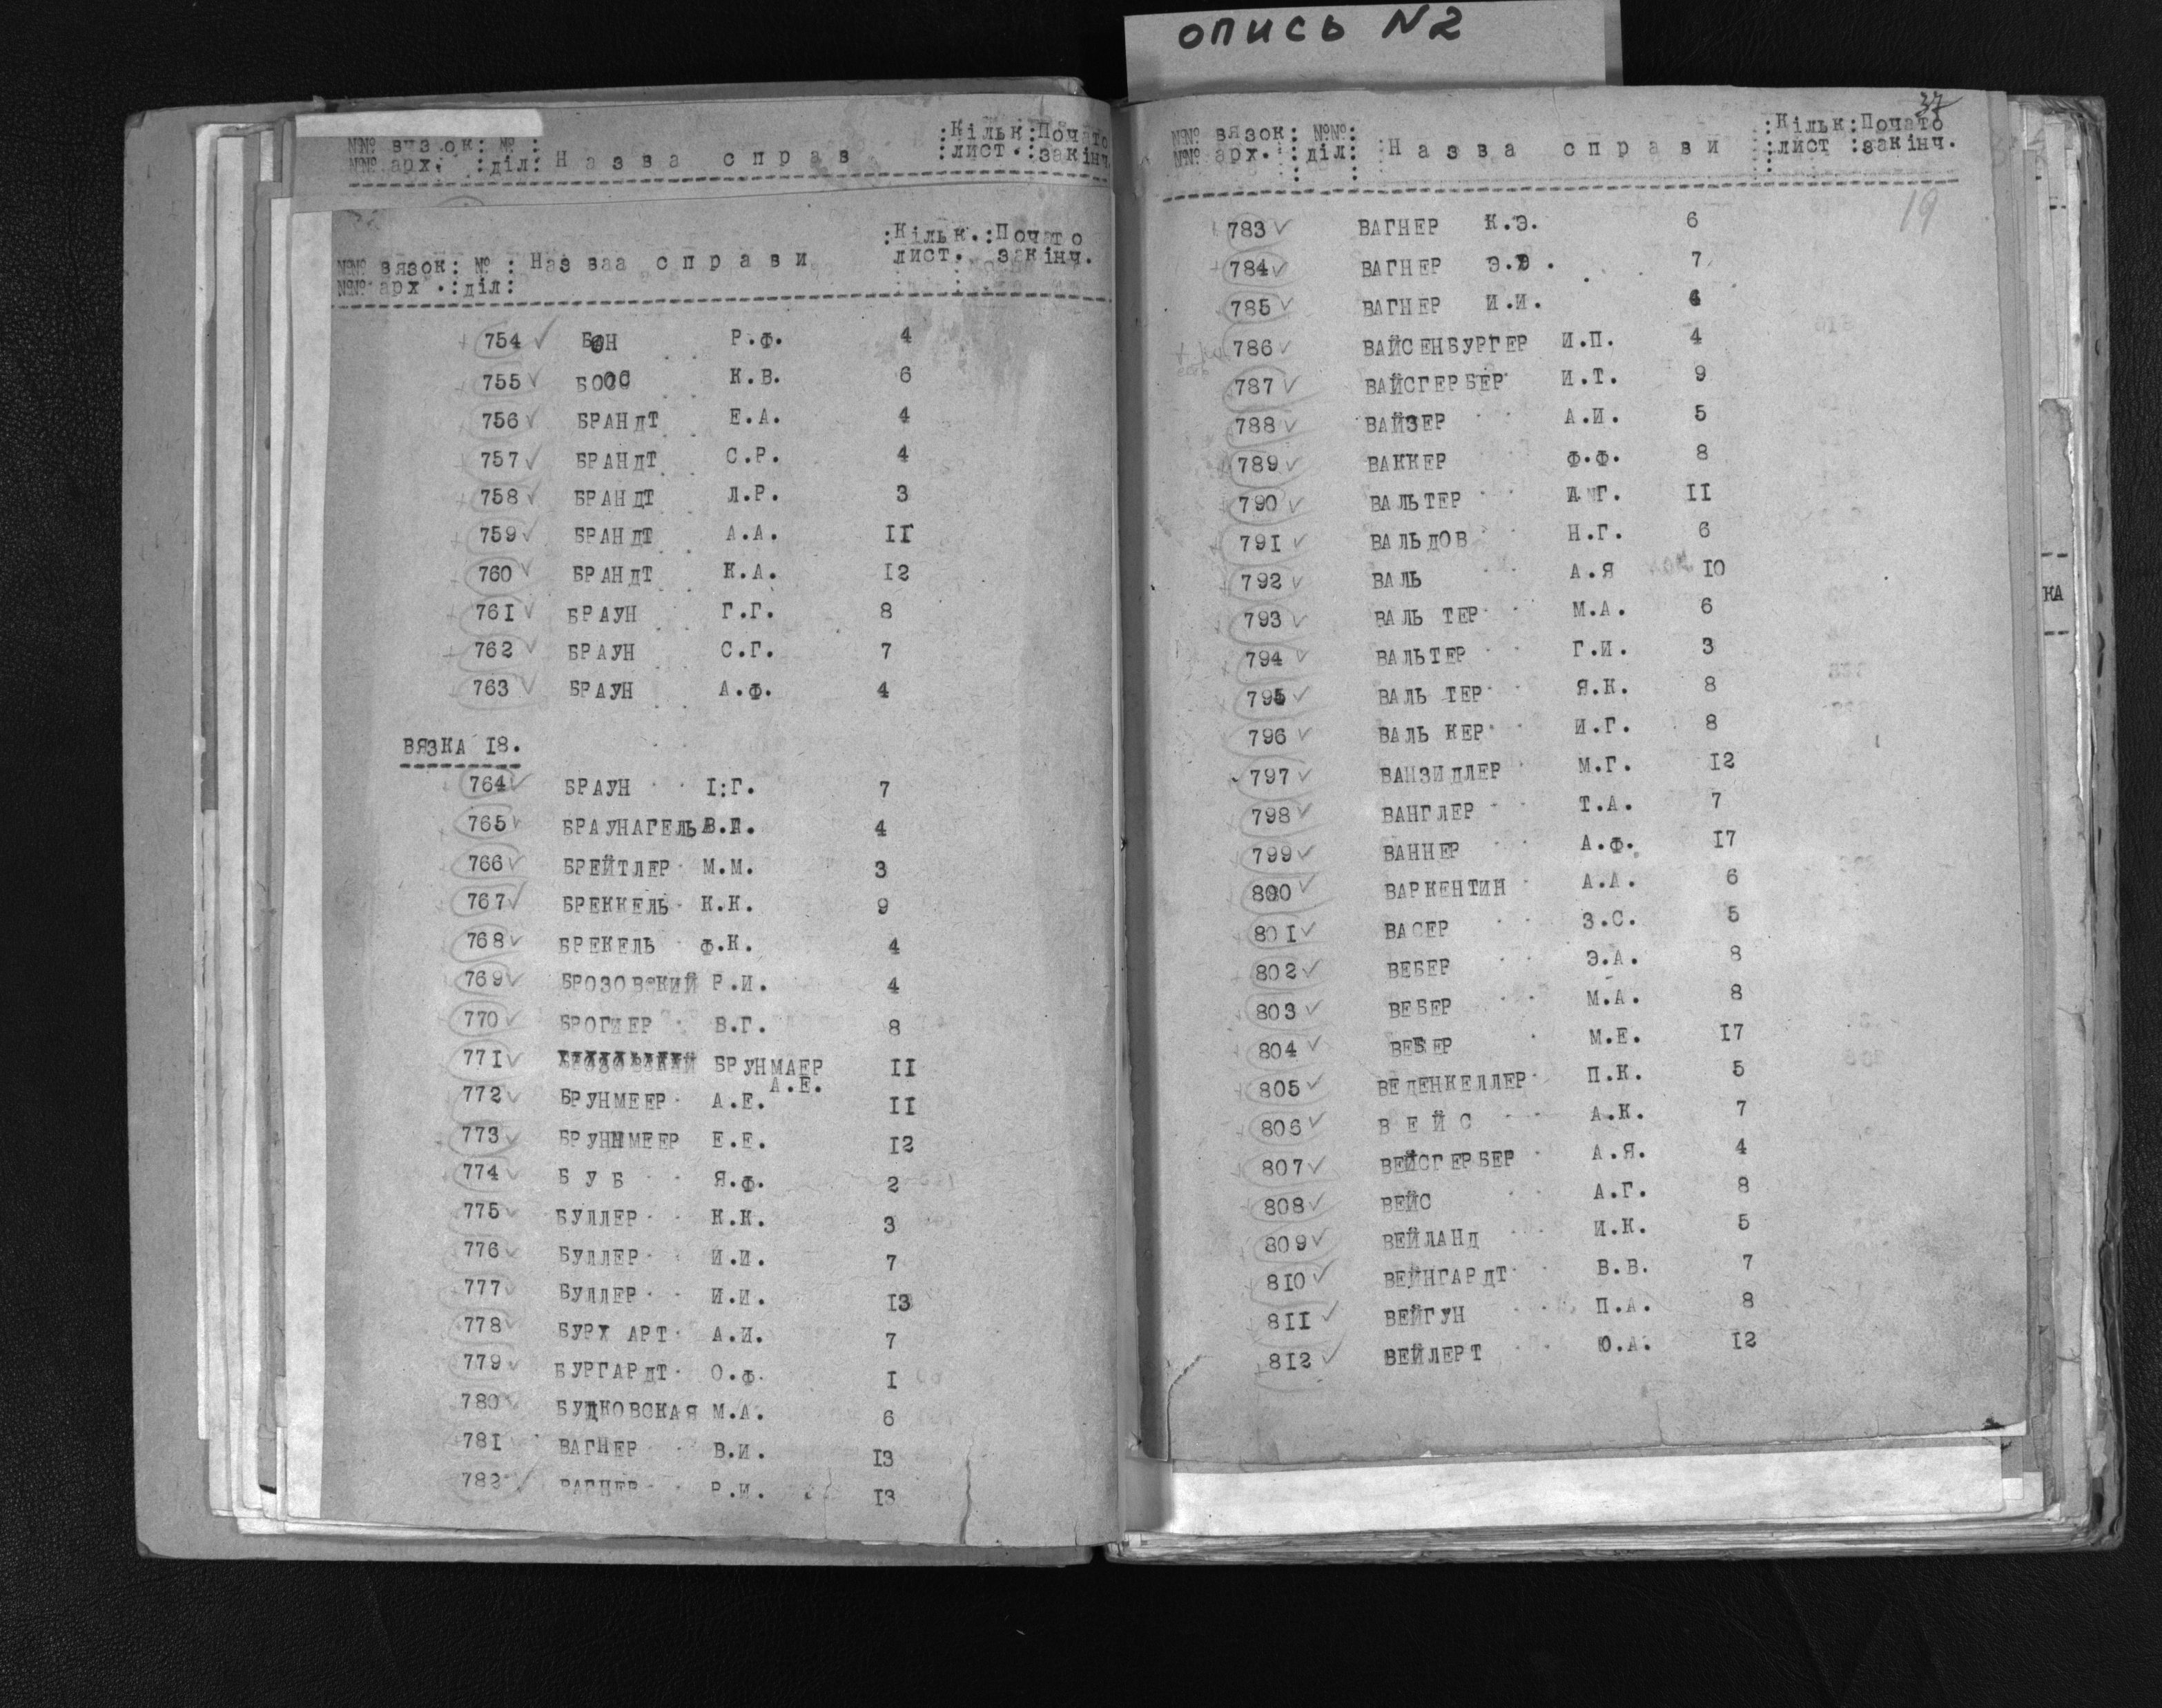 опись N2
№№ вязок: № :
№№ арх. :діл: Н а з в а с п р а в :Кільк:Почато
:лист.:закінч.
:Кільк.:Почато
№№ вязок: № : Наз ваа с п р а в и лист. закінч.
№№ арх .:діл:
754 БОН Р.Ф. 4
755 БООС К.В. 6
756 БРАНДТ Е.А. 4
757 БРАНДТ С.Р. 4
758 БРАНДТ Л.Р. 3
759 БРАНДТ А.А. II
760 БРАНДТ К.А. I2
76I БРАУН Г.Г. 8
762 БРАУН С.Г. 7
763 БРАУН А.Ф. 4
ВЯЗКА I8.
764 БРАУН I:Г. 7
765 БРАУНАГЕЛЬ 4
766 БРЕЙТЛЕР М.М. 3
767 БРЕККЕЛЬ К.К. 9
768 БРЕКЕЛЬ Ф.К. 4
769 БРОЗОВСКИЙ Р.И. 4
770 БРОГМЕР В.Г. 8
77I БРУНМАЕР II
А.Е.
772 БРУНМЕЕР А.Е. II
773 БРУННМЕЕР Е.Е. I2
774 Б У Б Я.Ф. 2
775 БУЛЛЕР К.К. 3
776 БУЛЛЕР И.И. 7
777 БУЛЛЕР И.И. I3
778 БУРХ АРТ А.И. 7
779 БУРГАРДТ О.Ф. I
780 БУДКОВСКАЯ М.А. 6
78I ВАГНЕР В.И. I3
782 ВАГНЕР Р.И. I3
37
№№ вязок: №№: :Кільк:Почато
№№ арх. : діл: :Н а з в а с п р а в и :лист :закінч.
19
783 ВАГНЕР К.Э. 6
784 ВАГНЕР 7
785 ВАГНЕР И.И.
786 ВАЙСЕНБУРГЕР И.П. 4
787 ВАЙСГЕРБЕР И.Т. 9
788 ВАЙЗЕР А.И. 5
789 ВАККЕР Ф.Ф. 8
790 ВАЛЬТЕР II
79I ВАЛЬДОВ Н.Г. 6
792 ВАЛЬ А.Я I0
793 ВАЛЬ ТЕР М.А. 6
794 ВАЛЬТЕР Г.И. 3
795 ВАЛЬ ТЕР Я.К. 8
796 ВАЛЬ КЕР И.Г. 8
797 ВАНЗИДЛЕР М.Г. I2
798 ВАНГЛЕР Т.А. 7
799 ВАННЕР А.Ф. I7
800 ВАРКЕНТИН А.А. 6
80I ВАСЕР З.С. 5
802 ВЕБЕР Э.А. 8
803 ВЕБЕР М.А. 8
804 ВЕБЕР М.Е. I7
805 ВЕДЕНКЕЛЛЕР П.К. 5
806 В Е Й С А.К. 7
807 ВЕЙСГЕРБЕР А.Я. 4
808 ВЕЙС А.Г. 8
809 ВЕЙЛАНД И.К. 5
8I0 ВЕЙНГАРДТ В.В. 7
8II ВЕЙГУН П.А. 8
8I2 ВЕЙЛЕРТ Ю.А. I2
КА